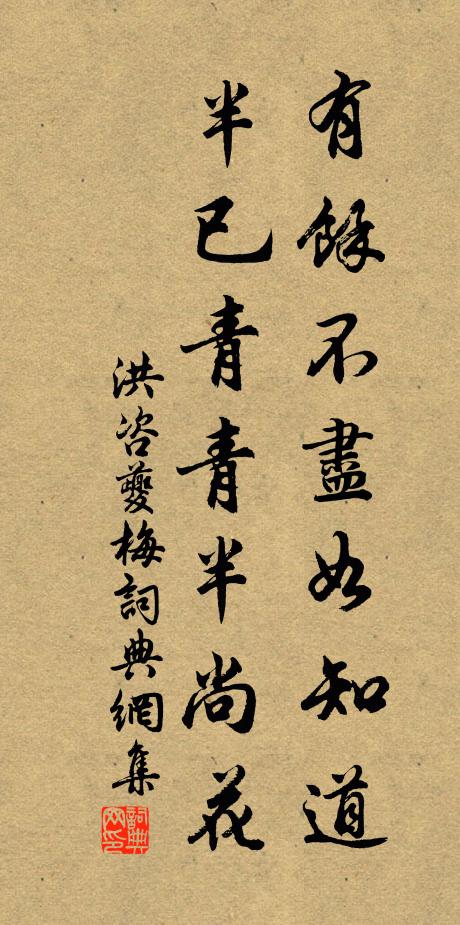 有餘不盡如知道
半已青青半尚花
洪咨夔梅詞典網集
詞典網印